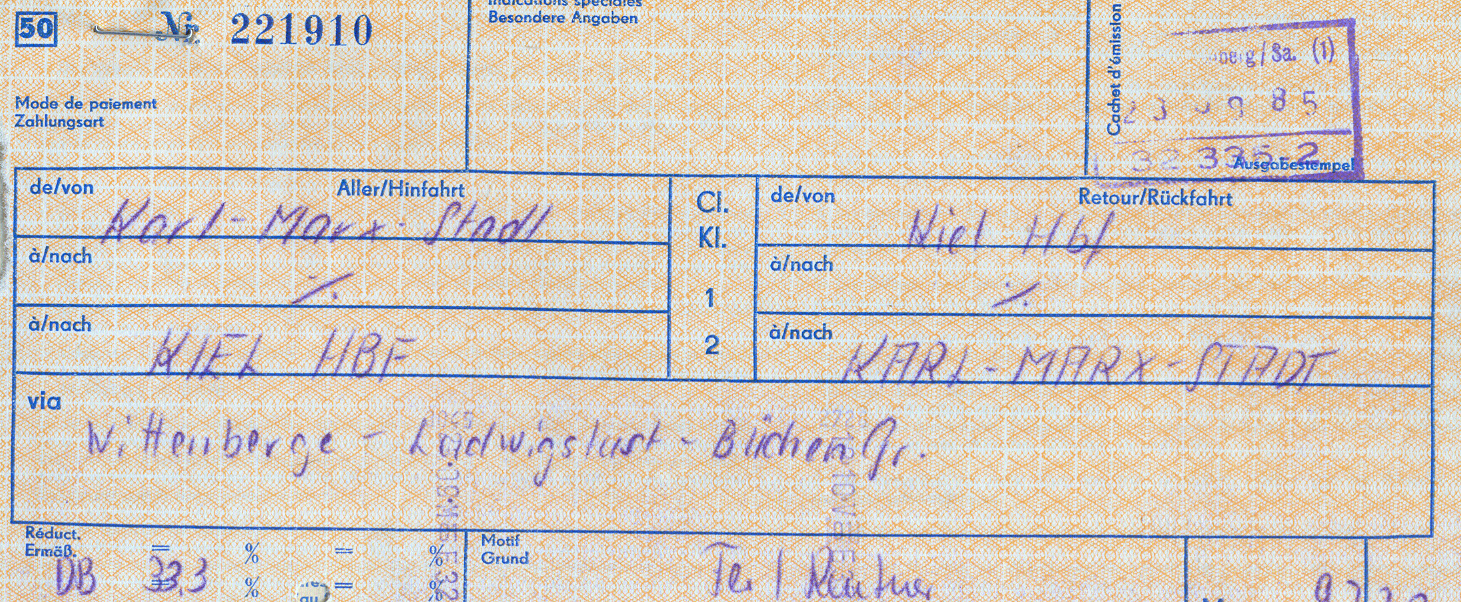 Indications spéciales
Besondere Angaben
50 Nr. 221910
Mode de paiement
Zahlungsart
Cachet d'émission
berg/Sa. (1)
85
32 335 2
Ausgabestempel
de/von Aller/Hinfahrt
Karl-Marx-Stadt
à/nach
٪
à/nach
KIEL HBF
Cl.
Kl.
1
2
de/von Retour/Rückfahrt
Kiel Hbf
à/nach
٪
à/nach
KARL-MARX-STADT
via
Wittenberge - Ludwigslust - Büchen Gr.
Réduct.
Ermäß. = % = %
DB 33,3 % = %
Motif
Grund
Rentner